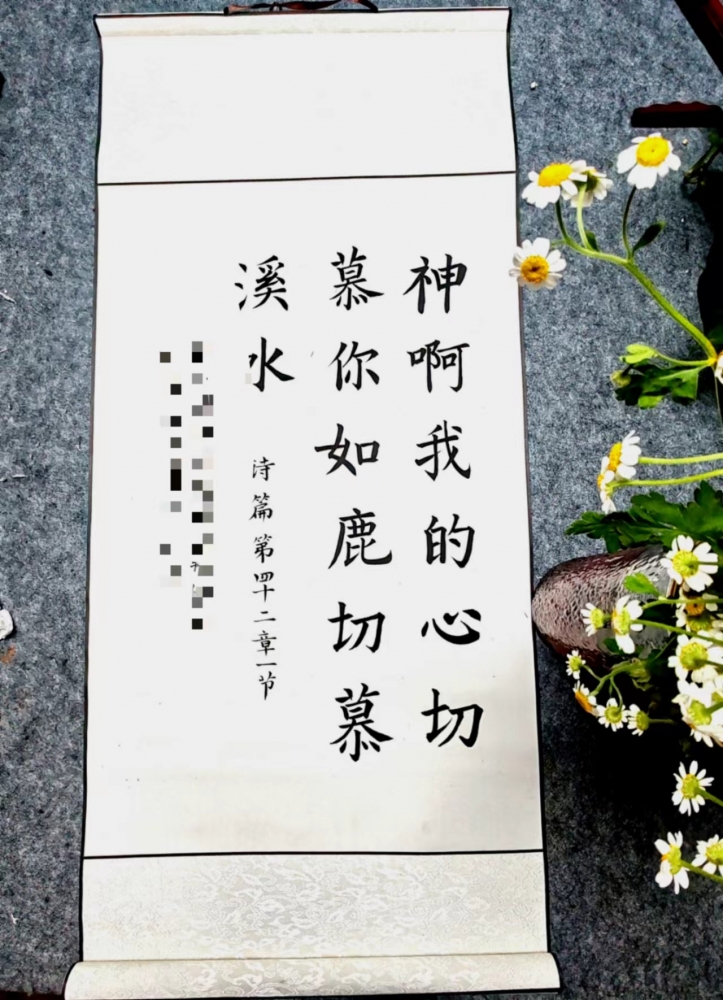 神啊我的心切
慕你如鹿切慕
溪水
诗篇第四十二章一节